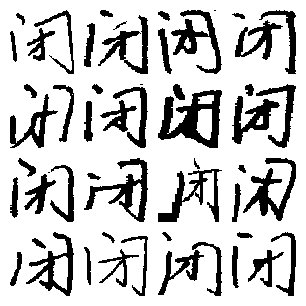 闭闭闭闭
闭闭闭闭
闭闭闭闭
闭闭闭闭